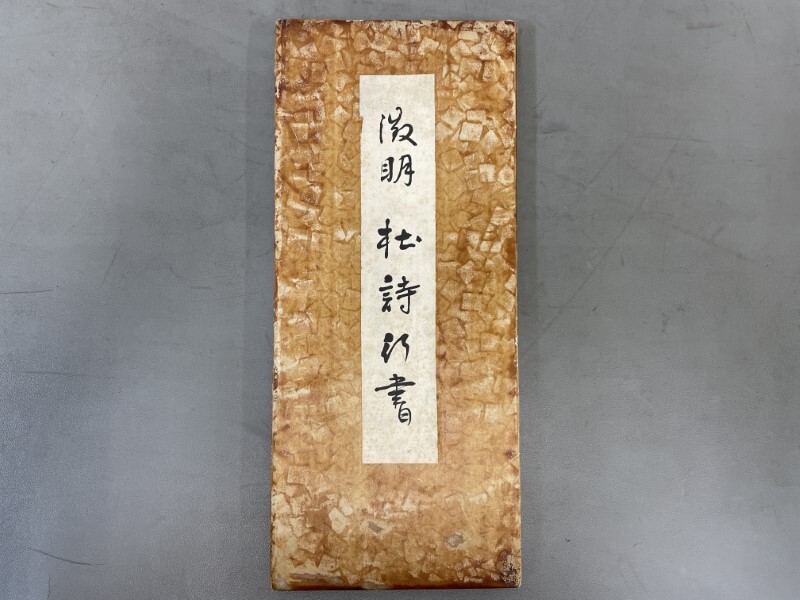 徴明 杜詩行書